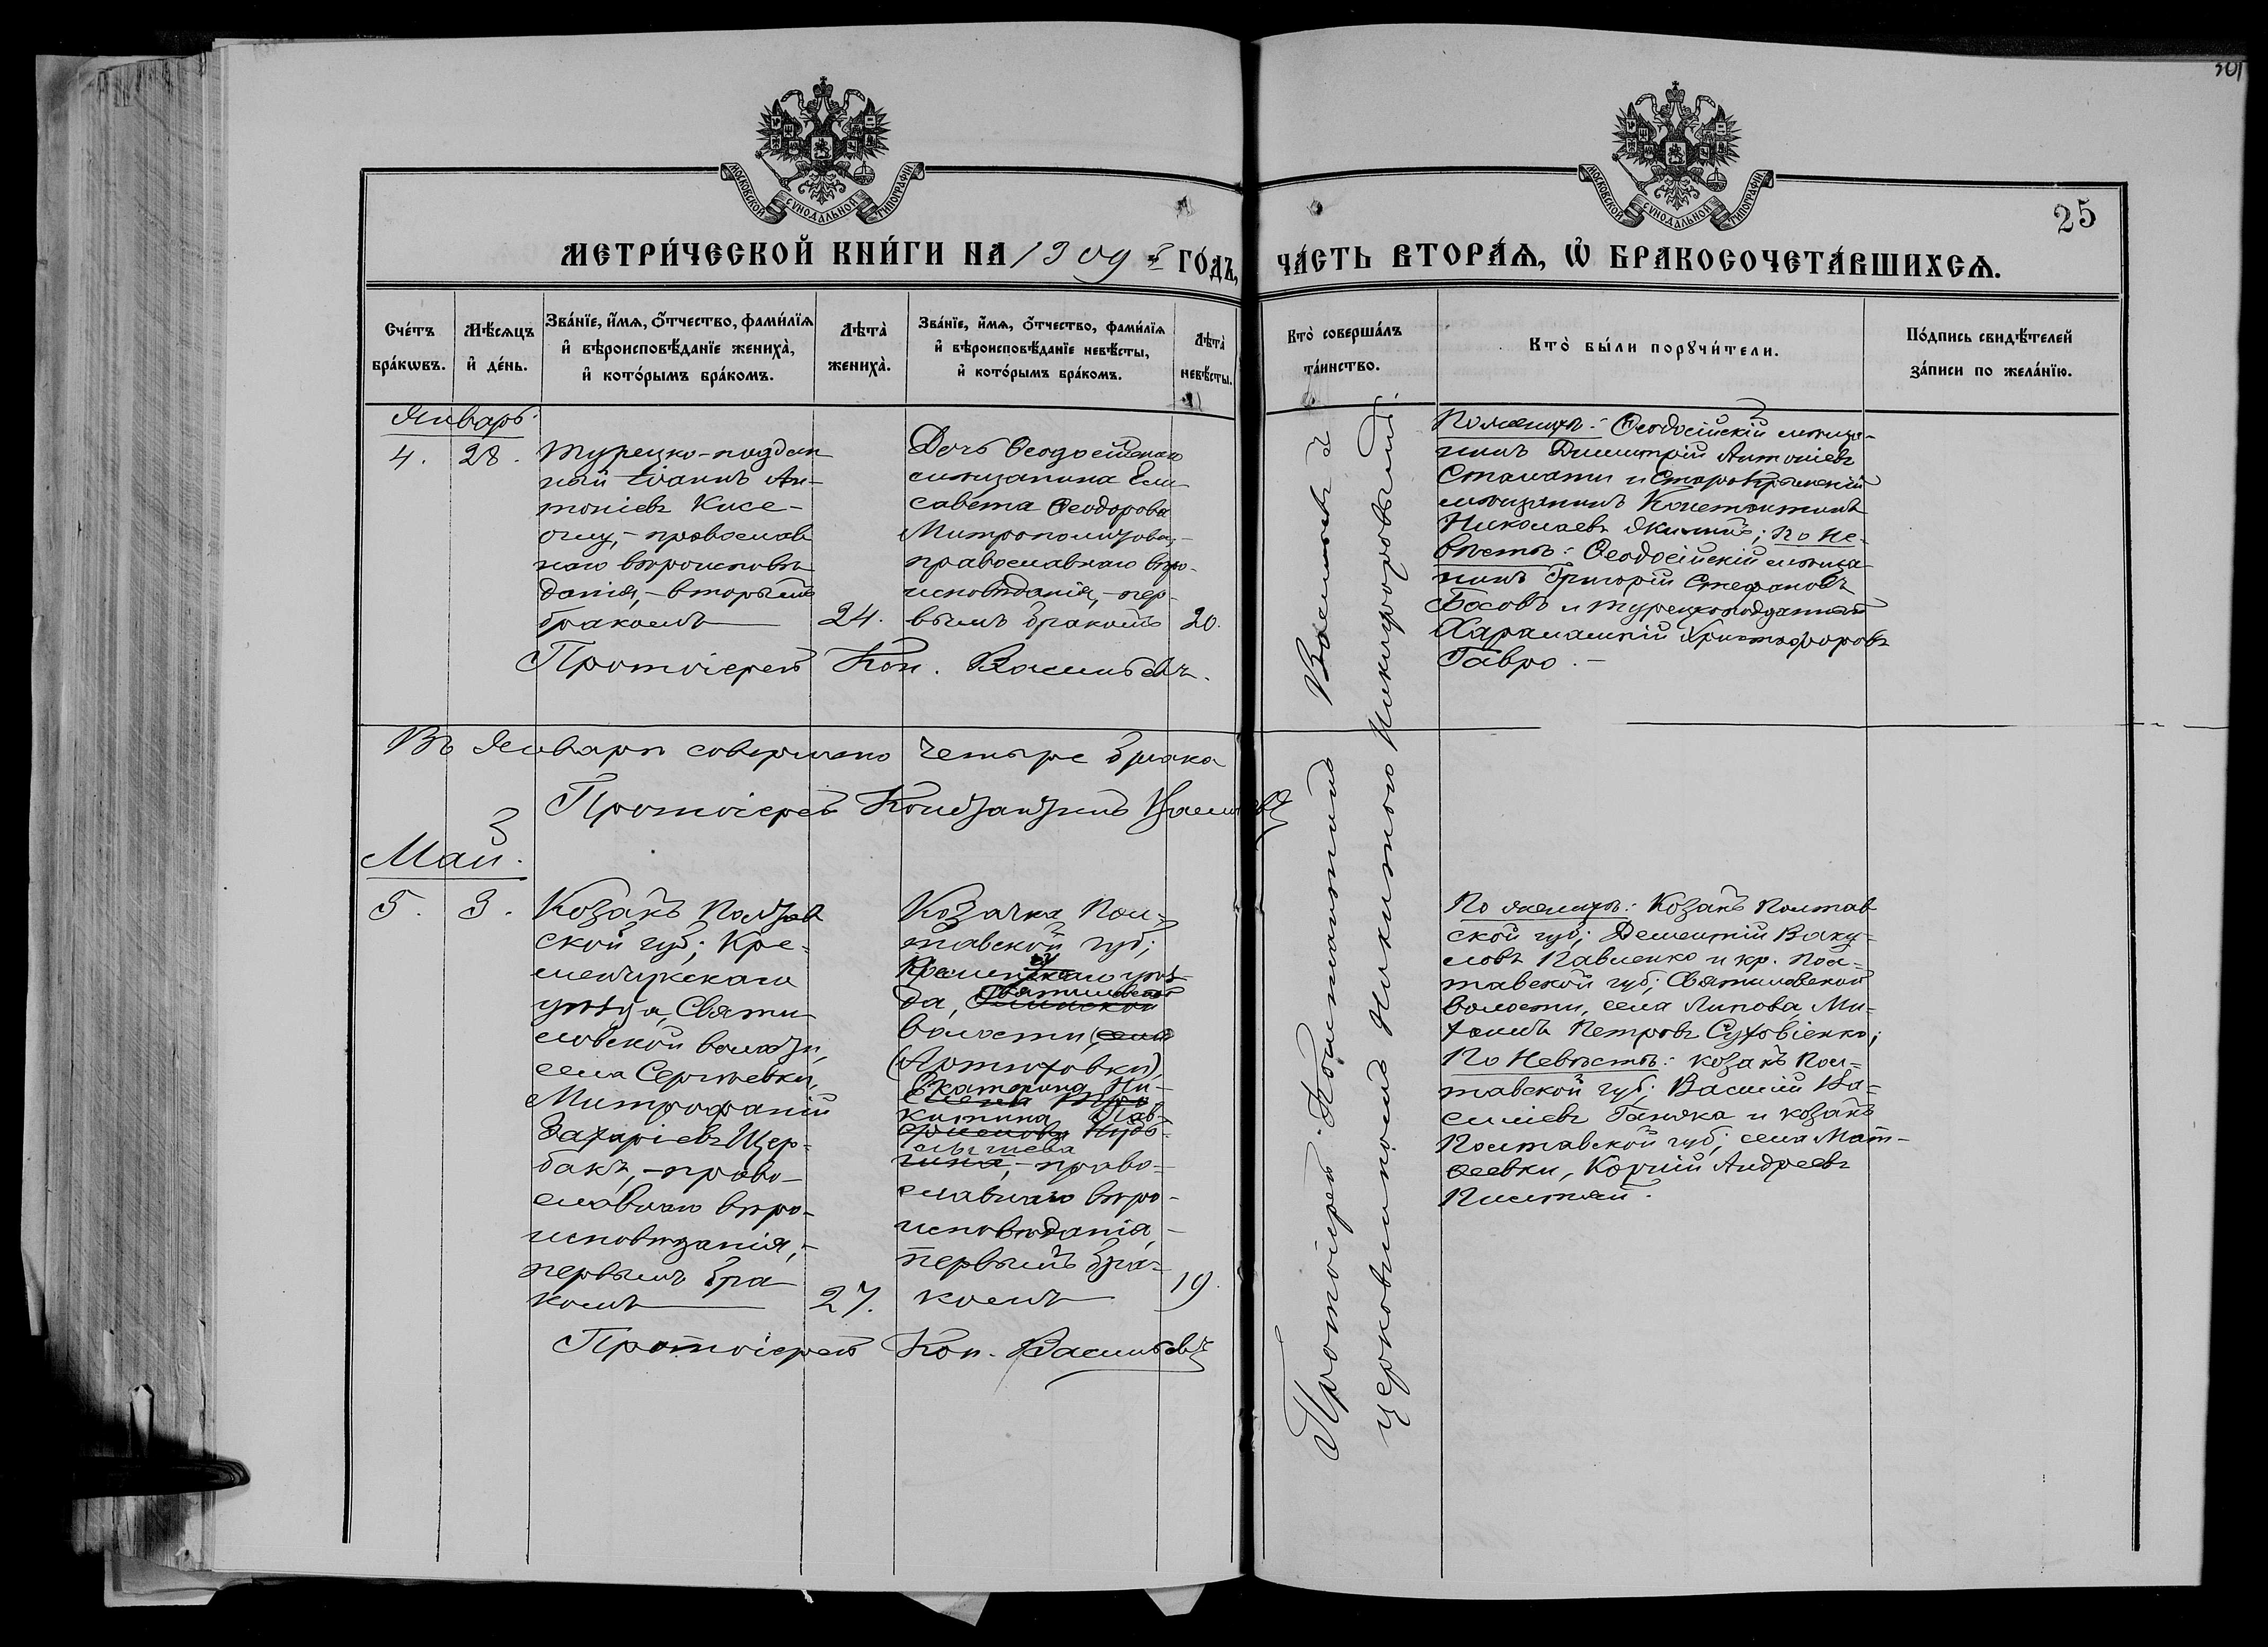 301
МОСКОВСКОЙ СУНОДАЛЬНОЙ ТИПОГРАФІИ.
МОСКОВСКОЙ СУНОДАЛЬНОЙ ТИПОГРАФІИ.
25
МЕТРИ́ЧЕСКОЙ КНИ́ГИ НА 1909 й ГО́ДЪ,
ЧА́СТЬ ВТОРА́Ѧ, Ѡ҆ БРАКОСОЧЕТА́ВШИХСѦ.
Сче́тъ бра́кѡвъ.
Мѣ́сѧцъ и҆ де́нь.
Зва́нїе, и҆́мѧ, ѻ҆́тчество, фами́лїѧ
и҆ вѣроисповѣ́данїе жениха̀,
и҆ кото́рымъ бра́комъ.
Лѣта̀ жениха̀.
Зва́нїе, и҆́мѧ, ѻ҆́тчество, фами́лїѧ
и҆ вѣроисповѣ́данїе невѣ́сты,
и҆ кото́рымъ бра́комъ.
Лѣта̀ невѣ́сты.
Кто̀ соверша́лъ
та́инство.
Кто̀ бы́ли порꙋчи́тели.
По́дпись свидѣ́телей
за́писи по жела́нїю.
Январь.
4. 28.
Турецко-поддан
ный Іоаннъ Ан-
тоніевъ Кисе-
оглу, - православ
наго вѣроисповѣ
данія, - вторымъ
бракомъ
24.
Дочь Ѳеодосійскаго
мѣщанина Ели
савета Ѳеодорова
Митрополитова, -
православнаго вѣро-
исповѣданія, - пер-
вымъ бракомъ
20.
Протоіерей Кон. Васильевъ.
По женихѣ: Ѳеодосійскій мѣща-
нинъ Димитрій Антоніевъ
Стамати и Старокрымскій
мѣщанинъ Константинъ
Николаевъ Якимъ; по не-
вѣстѣ: Ѳеодосійскій мѣща
нинъ Григорій Стефановъ
Босовъ и турецкоподданный
Харалампій Христофоровъ
Гавро. -
Въ Январѣ совершено четыре брака
Протоіерей Константинъ Васильевъ
Май.
5. 3.
Козакъ Полтав
ской губ; Кре-
менчугскаго
уѣзда, Святи
ловской волости,
села Сергѣевки,
Митрофаній
Захаріевъ Щер-
бакъ, - право-
славнаго вѣро-
исповѣданія, -
первымъ бра
комъ
27.
Козачка Пол-
тавской губ;
уѣз-
да, Святиловской
волости, села
(Артюховки)
Екатерина Ни-
китина Пав-
лышева
, - право-
славнаго вѣро-
исповѣданія, -
первымъ бра-
комъ
19.
Протоіерей Кон. Васильевъ
Протоіерей Константинъ Васильевъ съ
церковникомъ Никитою Никифоровымъ.
По женихѣ: Козакъ Полтав
ской губ; ДементійВаку-
ловъ Павленко и кр. Пол-
тавской губ; Святиловской
волости, села Липова, Ми-
хаилъ Петровъ Суховіенко;
По Невѣстѣ: козакъ Пол-
тавской губ; Василій Ва-
силіевъ Ганжа и козакъ
Полтавской губ; села Мат-
ѳеевки, Корній Андреевъ